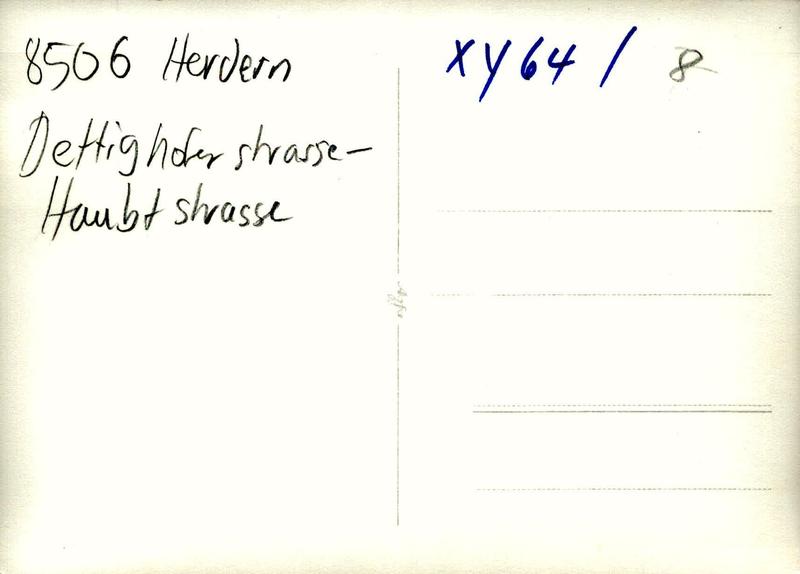 8506 Herdern
Dettighoferstrasse-
Haubtstrasse
XY64 / 8
Agfa